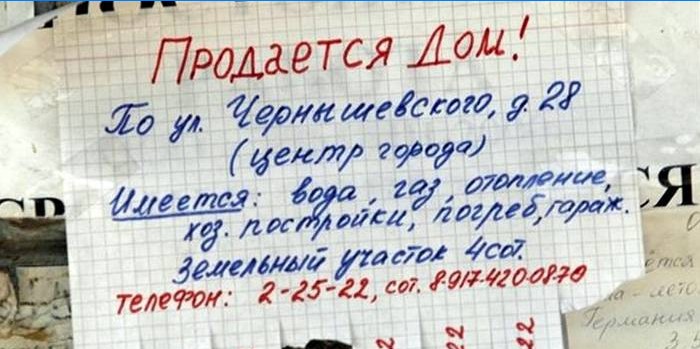 Продается Дом!
По ул. Чернышевского, д. 28
(центр города)
Имеется: вода, газ, отопление,
хоз. постройки, погреб, гараж.
Земельный участок 4 сот.
телефон: 2-25-22, сот. 8-917-420-0870
22
22
СЯ
Германия